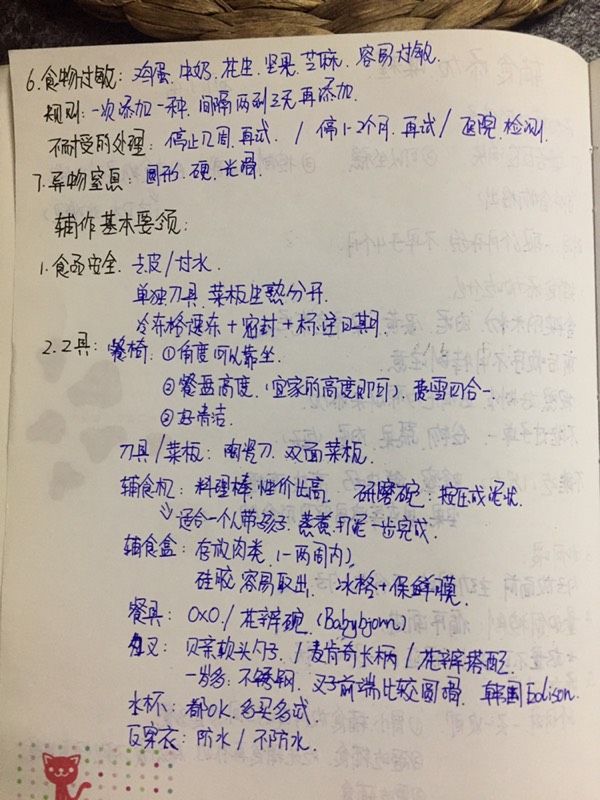 6.食物过敏：鸡蛋、牛奶、花生、坚果、芝麻、容易过敏.
规则：一次添加一种，间隔两到3天再添加.
不耐受的处理：停止几周，再试. / 停1-2个月，再试 / 医院检测.
7.异物窒息：圆形、硬、光滑.
辅作基本要领：
1.食品安全. 去皮/过水
单独刀具、菜板生熟分开.
冷冻格速冻+密封+标注日期.
2.工具：餐椅：①角度可以靠坐.
②餐盘高度.（宜家的高度即可）费雪四合一.
③好清洁.
刀具/菜板：陶瓷刀、双面菜板.
辅食机：料理棒 性价比高. 研磨碗：按压成泥状
适合一个人带孩子. 蒸煮打泥一步完成.
辅食盒：存放肉类（一两周内）
硅胶 容易取出. 冰格+保鲜膜.
餐具：OXO / 花瓣碗（Babybjorn）
勺叉：贝亲软头勺子. / 麦肯奇长柄 / 花瓣搭配
一岁多：不锈钢. 叉子前端比较圆滑. 韩国Edison.
水杯：都OK 多买多试.
反穿衣：防水 / 不防水.